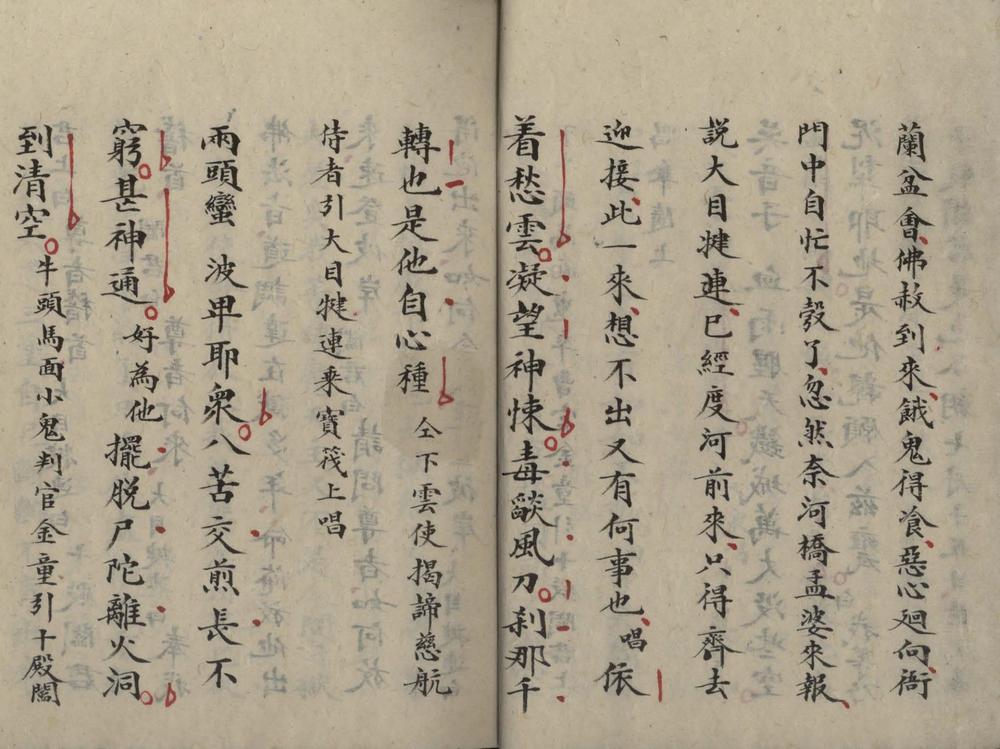 蘭盆會佛赦到來餓鬼得飡惡心廻向衙
門中自忙不彀了忽然奈河橋孟婆來報
說大目揵連已經度河前來只得齊去
迎接此一來想不出又有何事也唱依
着愁雲凝望神悚毒燄風刀刹那千
轉也是他自心種仝下雲使揭諦慈航
侍者引大目揵連乘寶筏上唱
兩頭蠻波卑耶衆八苦交煎長不
窮甚神通好為他擺脫尸陀離火洞
到清空牛頭馬面小鬼判官金童引十殿閻